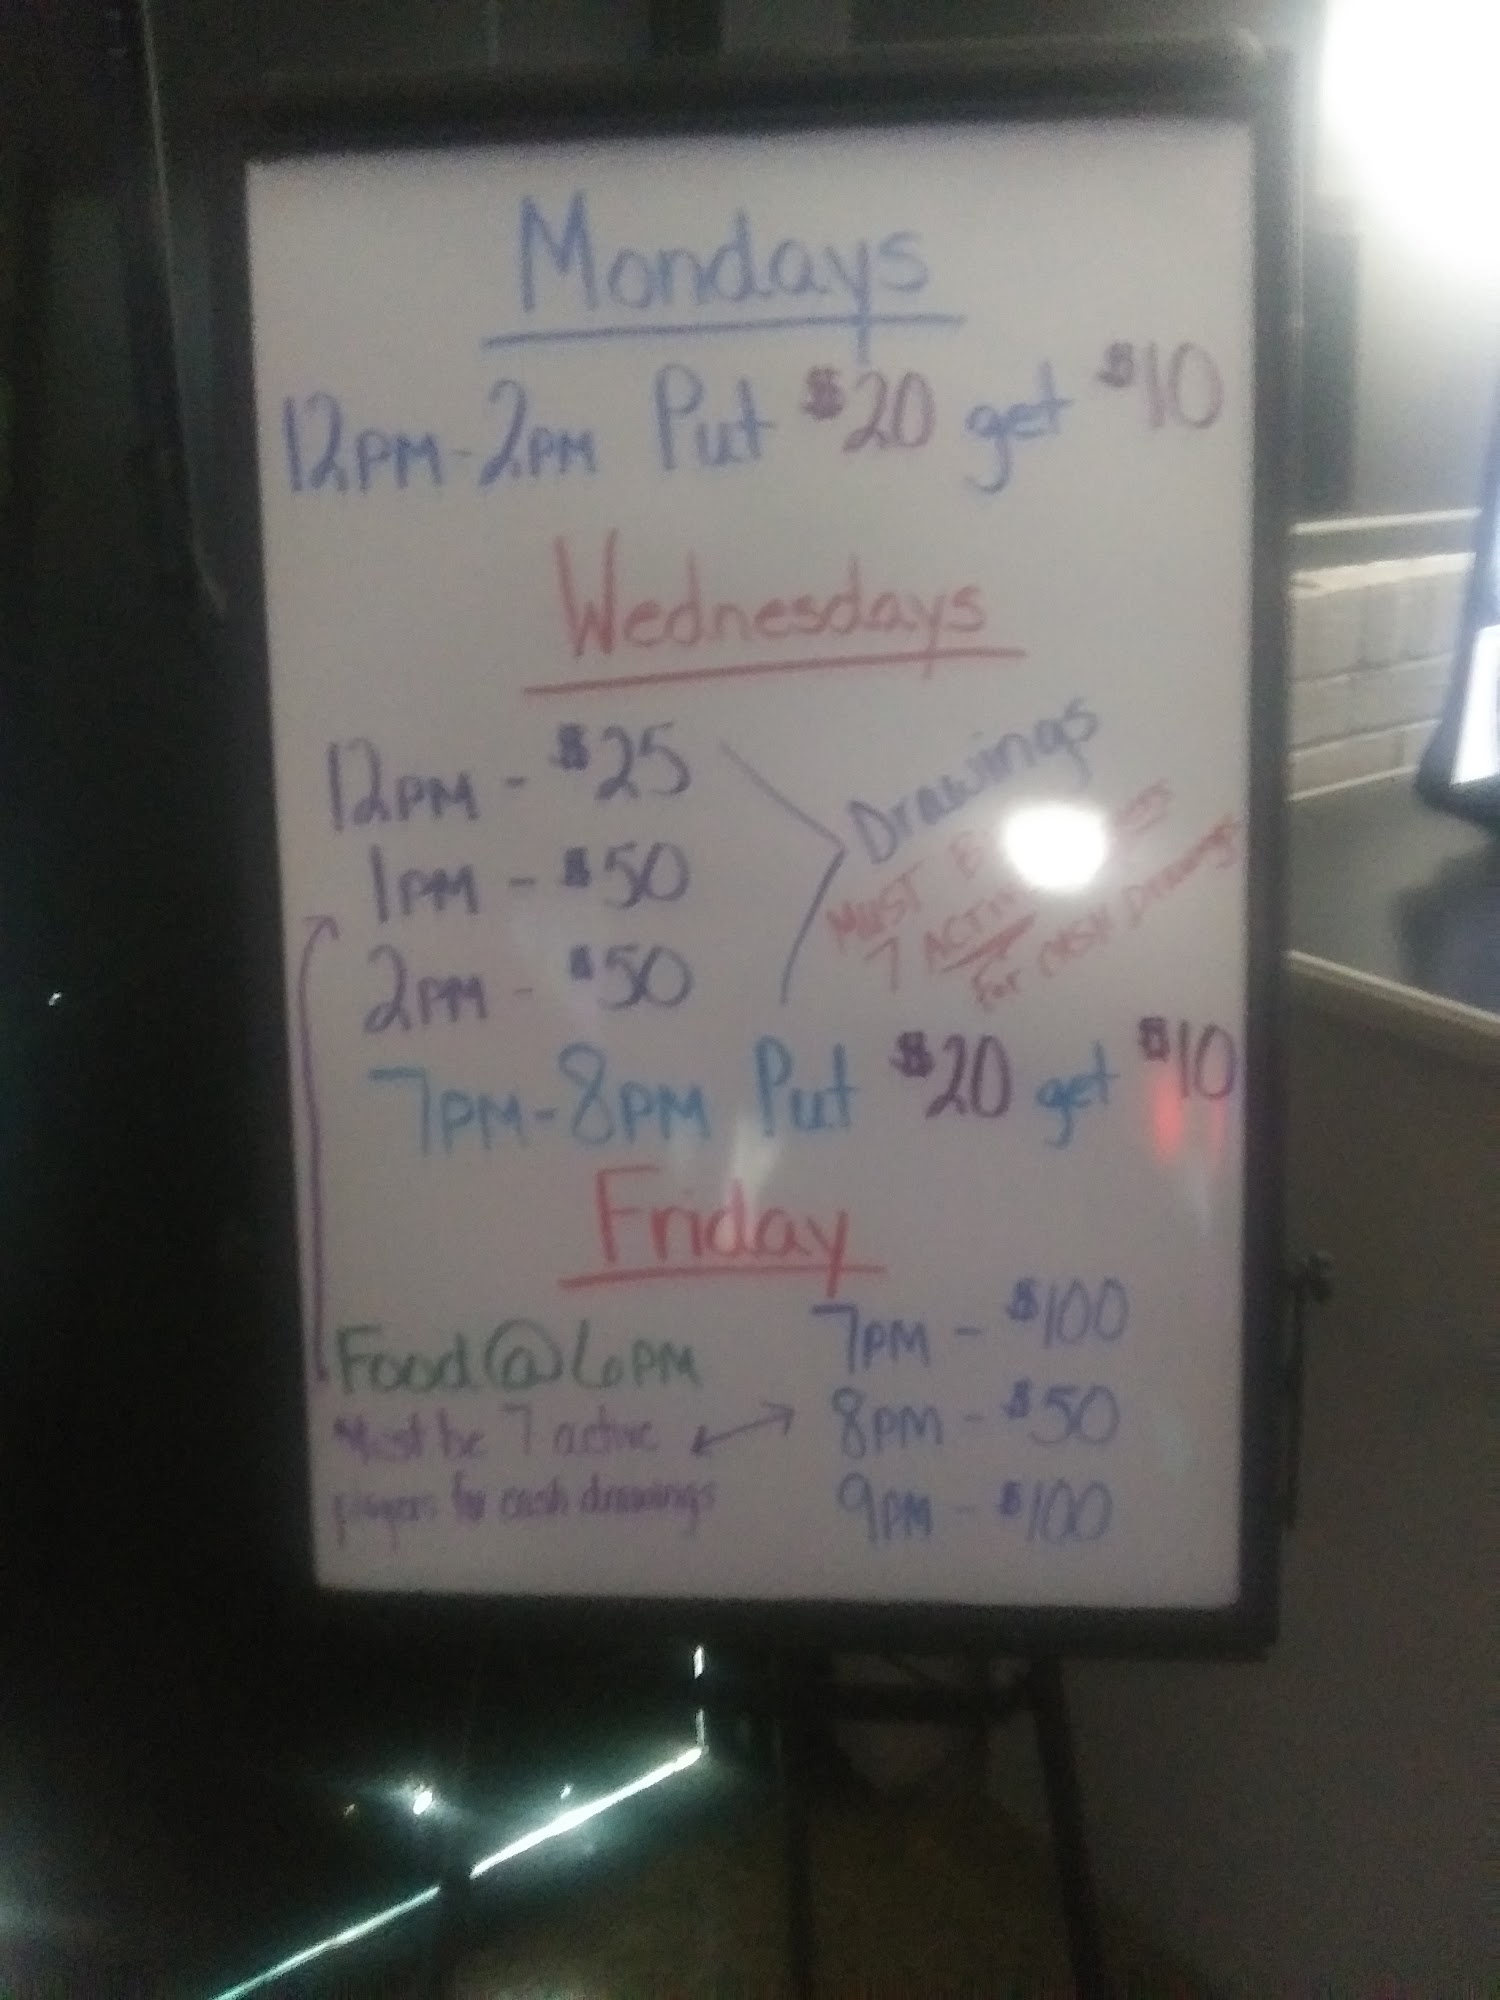 Mondays
12PM-2PM Put $20 get $10
Wednesdays
12PM - $25
1PM - $50
2PM - $50
Drawings
MUST
7
For CASH Drawings
7PM-8PM Put $20 get $10
Friday
Food@6PM
Must be 7 active
players for cash drawings
7PM - $100
8PM - $50
9PM - $100